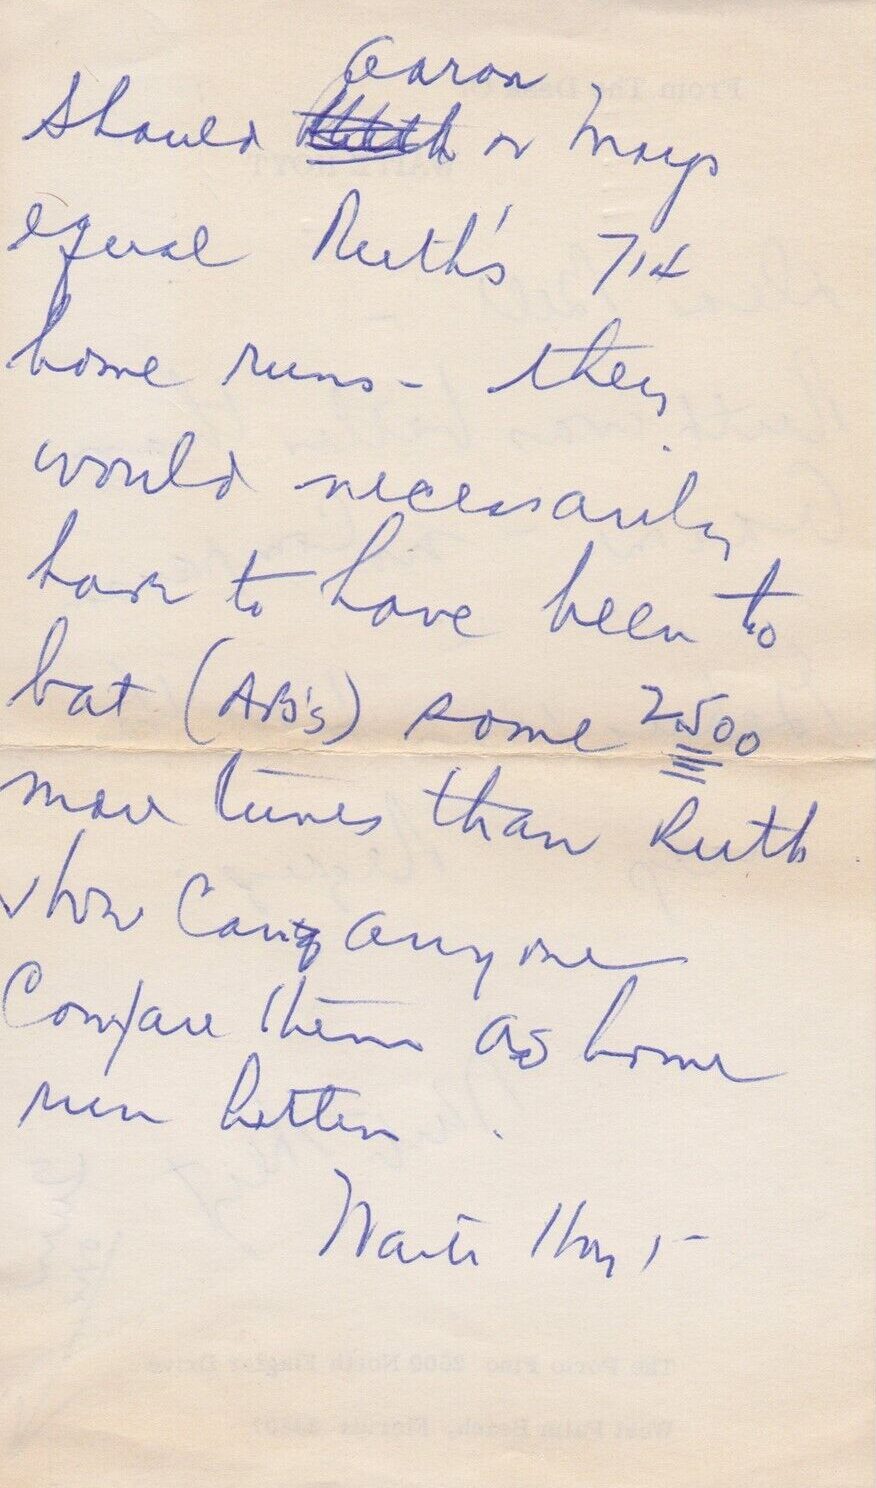 Aaron
Should Ruth or Mays
equal Ruth's 714
home runs - they
would necessarily
have to have been to
bat (AB's) some 2500
more times than Ruth
how can anyone
Compare them as home
run hitters.
Waite Hoyt -
From The Desk
The Portofino 2500 North Flagler Drive
West Palm Beach, Florida 33407